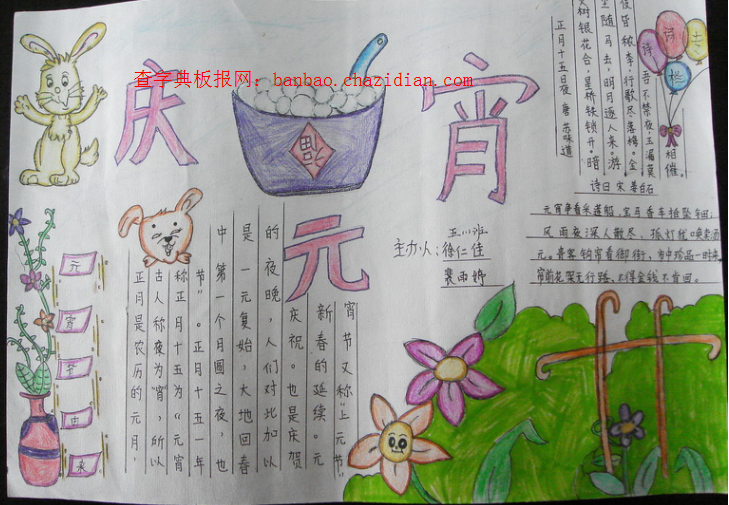 查字典板报网：banbao.chazidian.com
庆
宵
元
福
元
宵
节
由
来
正月是农历的元月，
古人称夜为“宵”，所以
称正月十五为“元宵
节”。正月十五一年
中第一个月圆之夜，也
是一元复始，大地回春
的夜晚，人们对此加以
庆祝。也是庆贺
新春的延续。元
宵节又称“上元节”
五（1）班
主办人：徐仁佳
诗
正月十五日夜 唐 苏味道
树银花合，星桥铁锁开。暗
随马去，明月逐人来。游
伎皆秾李，行歌尽落梅。金
吾不禁夜，玉漏莫
相催。
诗曰 宋 姜白石
元宵争看采莲船，宝马香车拾坠钿；
风雨夜深人散尽，孤灯犹唤卖汤
元。贵客钩帘看御街，市中珍品一时来，
帘前花架无行路，不得金钱不肯回。